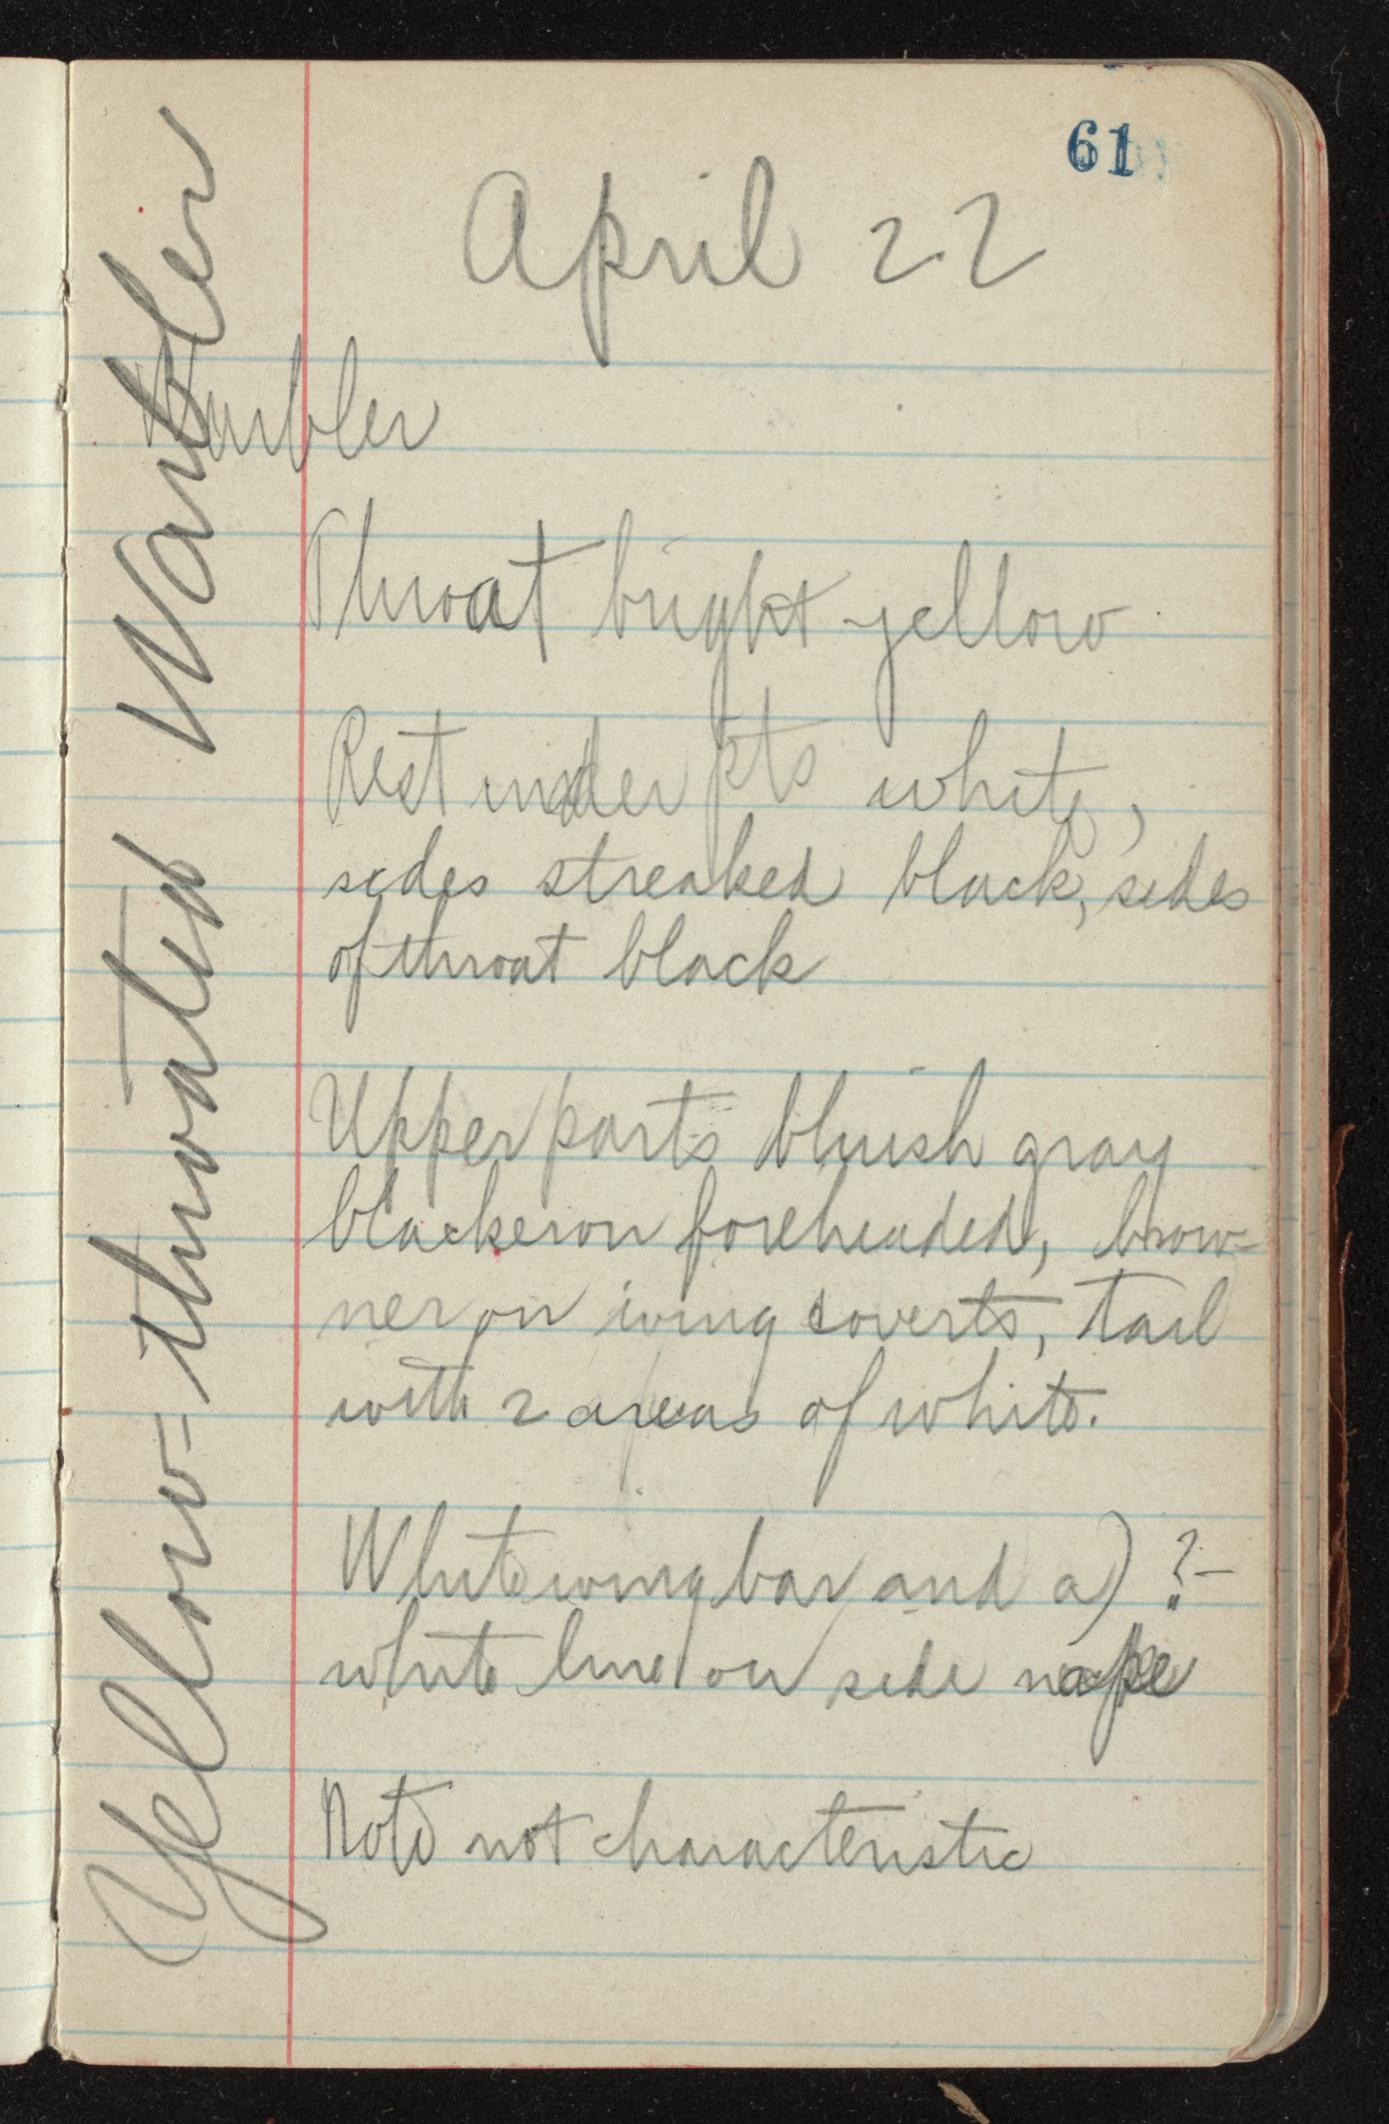 61
April 22
Warbler
Throat bright yellow
Rest under pts white,
sides streaked black, sides
of throat black
Upper parts bluish gray
blacker on foreheaded, brow-
ner on wing coverts, tail
with 2 areas of white.
White wing bar and a) ?-
white line on side nape
Note not characteristic
Yellow-throated Warbler